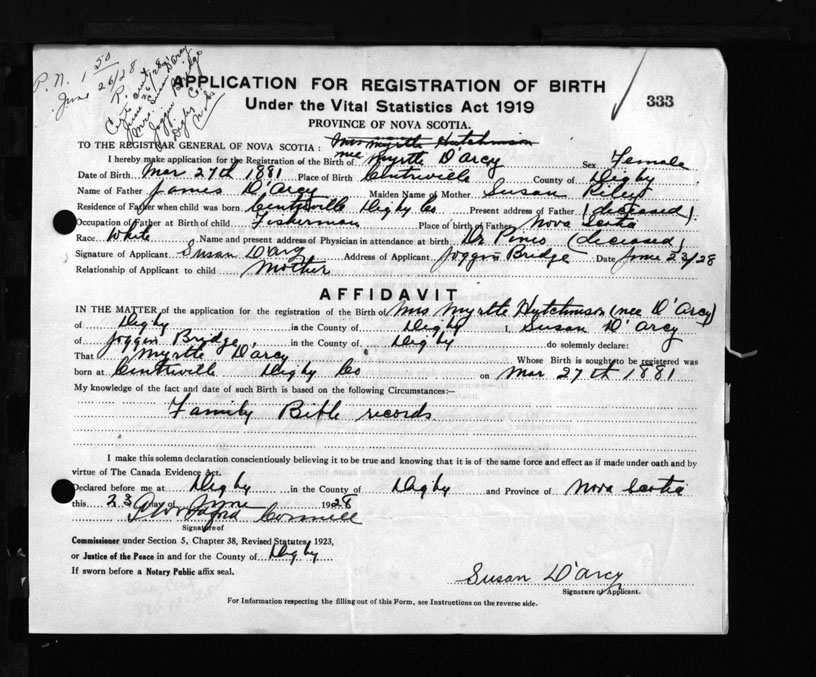 P. N. 1 50
June 26/28
APPLICATION FOR REGISTRATION OF BIRTH
Under the Vital Statistics Act 1919
333
PROVINCE OF NOVA SCOTIA.
Mrs Myrtle Hutchinson
TO THE REGISTRAR GENERAL OF NOVA SCOTIA :
I hereby make application for the Registration of the Birth of nee Myrtle D'Arcy Sex Female
Date of Birth Mar 27th 1881 Place of Birth Centreville County of Digby
Name of Father James D'Arcy Maiden Name of Mother Susan
Residence of Father when child was born Centreville Digby Co Present address of Father (deceased)
Occupation of Father at Birth of child Fisherman Place of birth of Father Nova Scotia
Race White Name and present address of Physician in attendance at birth Dr (deceased)
Signature of Applicant Susan D'Arcy Address of Applicant Joggin Bridge Date June 23/28
Relationship of Applicant to child Mother
AFFIDAVIT
IN THE MATTER of the application for the registration of the Birth of Mrs Myrtle Hutchinson (nee D'Arcy)
of Digby in the County of Digby I, Susan D'arcy
of Joggin Bridge, in the County of Digby do solemnly declare:
That Myrtle D'arcy Whose Birth is sought to be registered was
born at Centreville Digby Co on Mar 27th 1881
My knowledge of the fact and date of such Birth is based on the following Circumstances:—
Family Bible records
I make this solemn declaration conscientiously believing it to be true and knowing that it is of the same force and effect as if made under oath and by
virtue of The Canada Evidence Act.
Declared before me at Digby in the County of Digby and Province of Nova Scotia
this 23 day of June 1928
Signature of
Commissioner under Section 5, Chapter 38, Revised Statutes, 1923,
or Justice of the Peace in and for the County of Digby
If sworn before a Notary Public affix seal.
Susan D'arcy
Signature of Applicant.
For Information respecting the filling out of this Form, see Instructions on the reverse side.